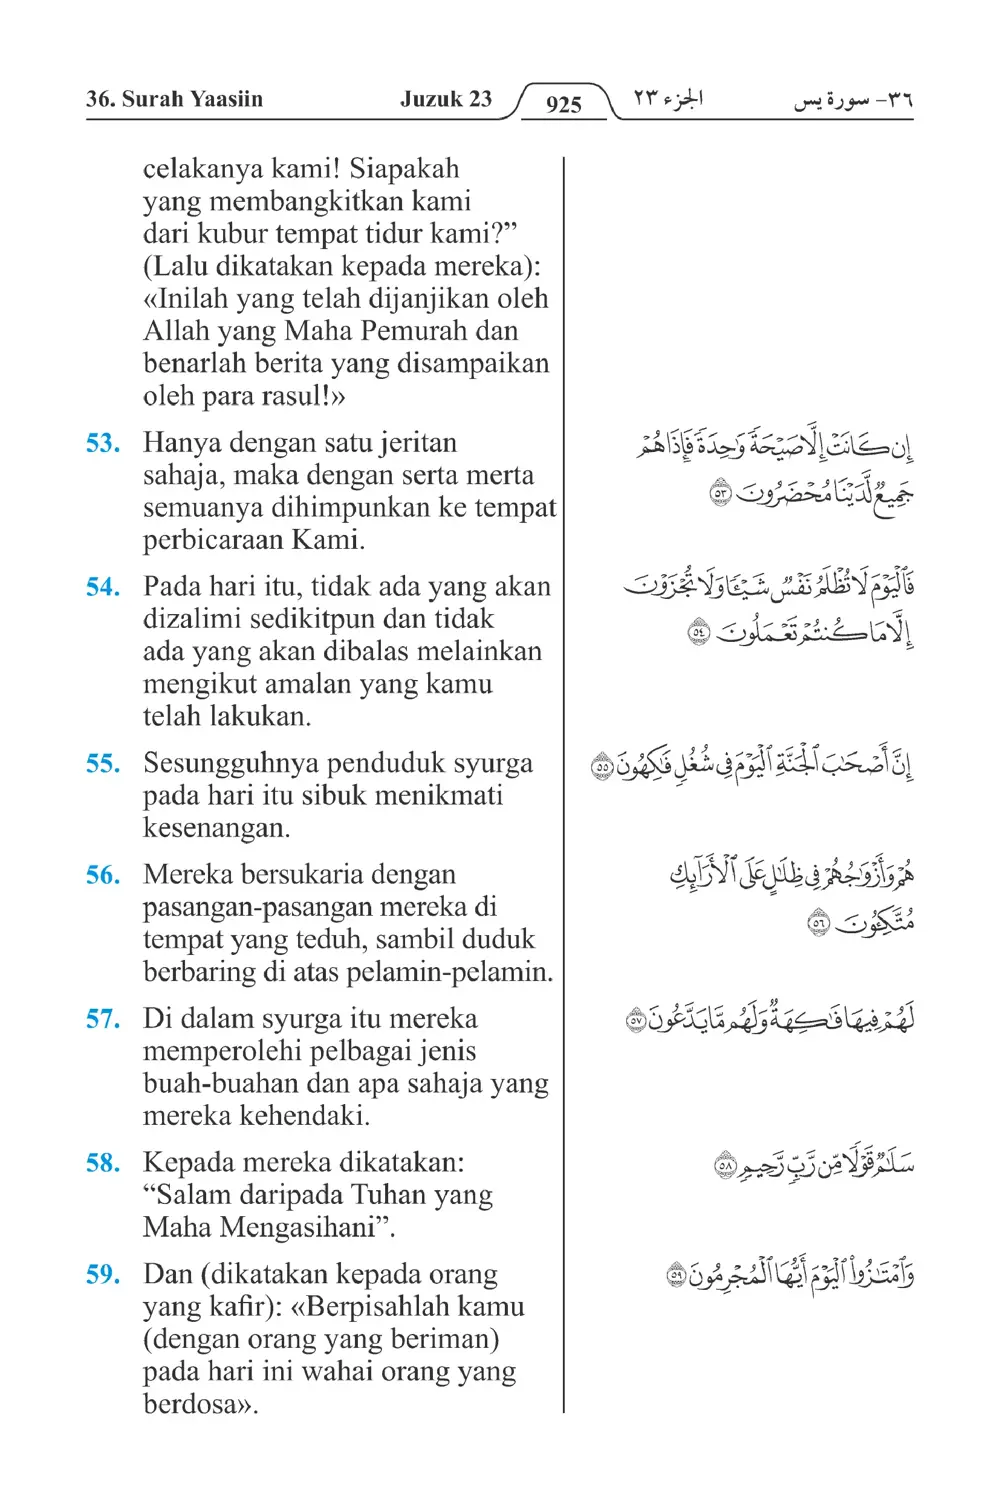 36. Surah Yaasiin Juzuk 23 925 الجزء ٢٣ ٣٦- سورة يس
celakanya kami! Siapakah
yang membangkitkan kami
dari kubur tempat tidur kami?”
(Lalu dikatakan kepada mereka):
«Inilah yang telah dijanjikan oleh
Allah yang Maha Pemurah dan
benarlah berita yang disampaikan
oleh para rasul!»
53. Hanya dengan satu jeritan
sahaja, maka dengan serta merta
semuanya dihimpunkan ke tempat
perbicaraan Kami.
إِن كَانَتْ إِلَّا صَيْحَةً وَٰحِدَةً فَإِذَا هُمْ
جَمِيعٌ لَّدَيْنَا مُحْضَرُونَ ٥٣
54. Pada hari itu, tidak ada yang akan
dizalimi sedikitpun dan tidak
ada yang akan dibalas melainkan
mengikut amalan yang kamu
telah lakukan.
فَٱلْيَوْمَ لَا تُظْلَمُ نَفْسٌ شَيْـًٔا وَلَا تُجْزَوْنَ
إِلَّا مَا كُنتُمْ تَعْمَلُونَ ٥٤
55. Sesungguhnya penduduk syurga
pada hari itu sibuk menikmati
kesenangan.
إِنَّ أَصْحَٰبَ ٱلْجَنَّةِ ٱلْيَوْمَ فِى شُغُلٍ فَٰكِهُونَ ٥٥
56. Mereka bersukaria dengan
pasangan-pasangan mereka di
tempat yang teduh, sambil duduk
berbaring di atas pelamin-pelamin.
هُمْ وَأَزْوَٰجُهُمْ فِى ظِلَٰلٍ عَلَى ٱلْأَرَآئِكِ
مُتَّكِـُٔونَ ٥٦
57. Di dalam syurga itu mereka
memperolehi pelbagai jenis
buah-buahan dan apa sahaja yang
mereka kehendaki.
لَهُمْ فِيهَا فَٰكِهَةٌ وَلَهُم مَّا يَدَّعُونَ ٥٧
58. Kepada mereka dikatakan:
“Salam daripada Tuhan yang
Maha Mengasihani”.
سَلَٰمٌ قَوْلًا مِّن رَّبٍّ رَّحِيمٍ ٥٨
59. Dan (dikatakan kepada orang
yang kafir): «Berpisahlah kamu
(dengan orang yang beriman)
pada hari ini wahai orang yang
berdosa».
وَٱمْتَٰزُوا۟ ٱلْيَوْمَ أَيُّهَا ٱلْمُجْرِمُونَ ٥٩